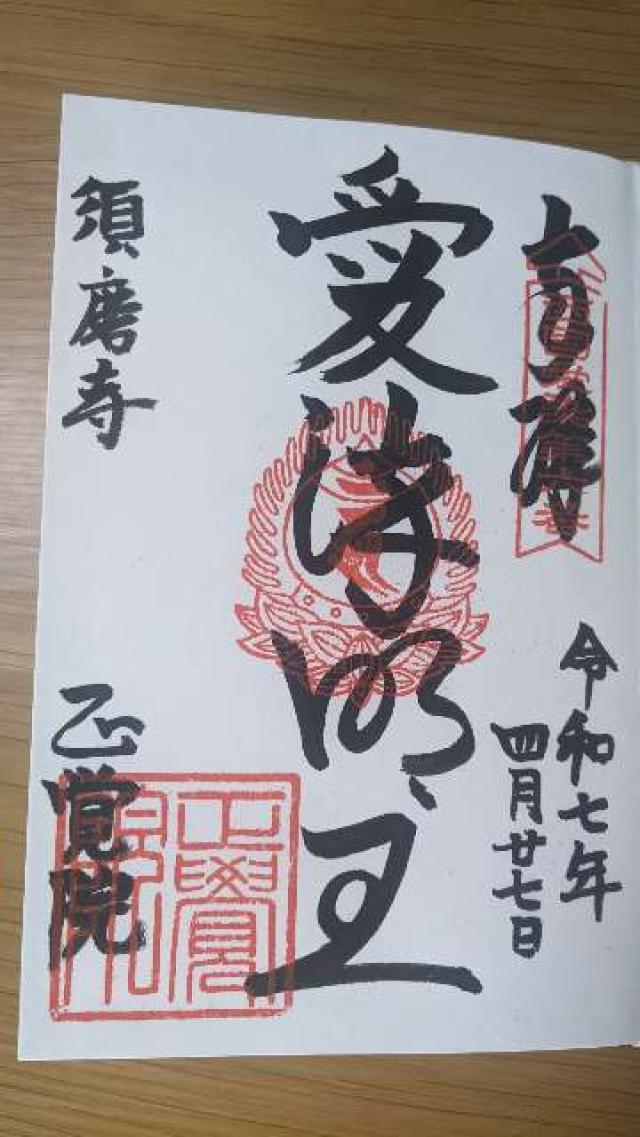 奉拝
令和七年
四月廿七日
愛染明王
須磨寺
正覚院